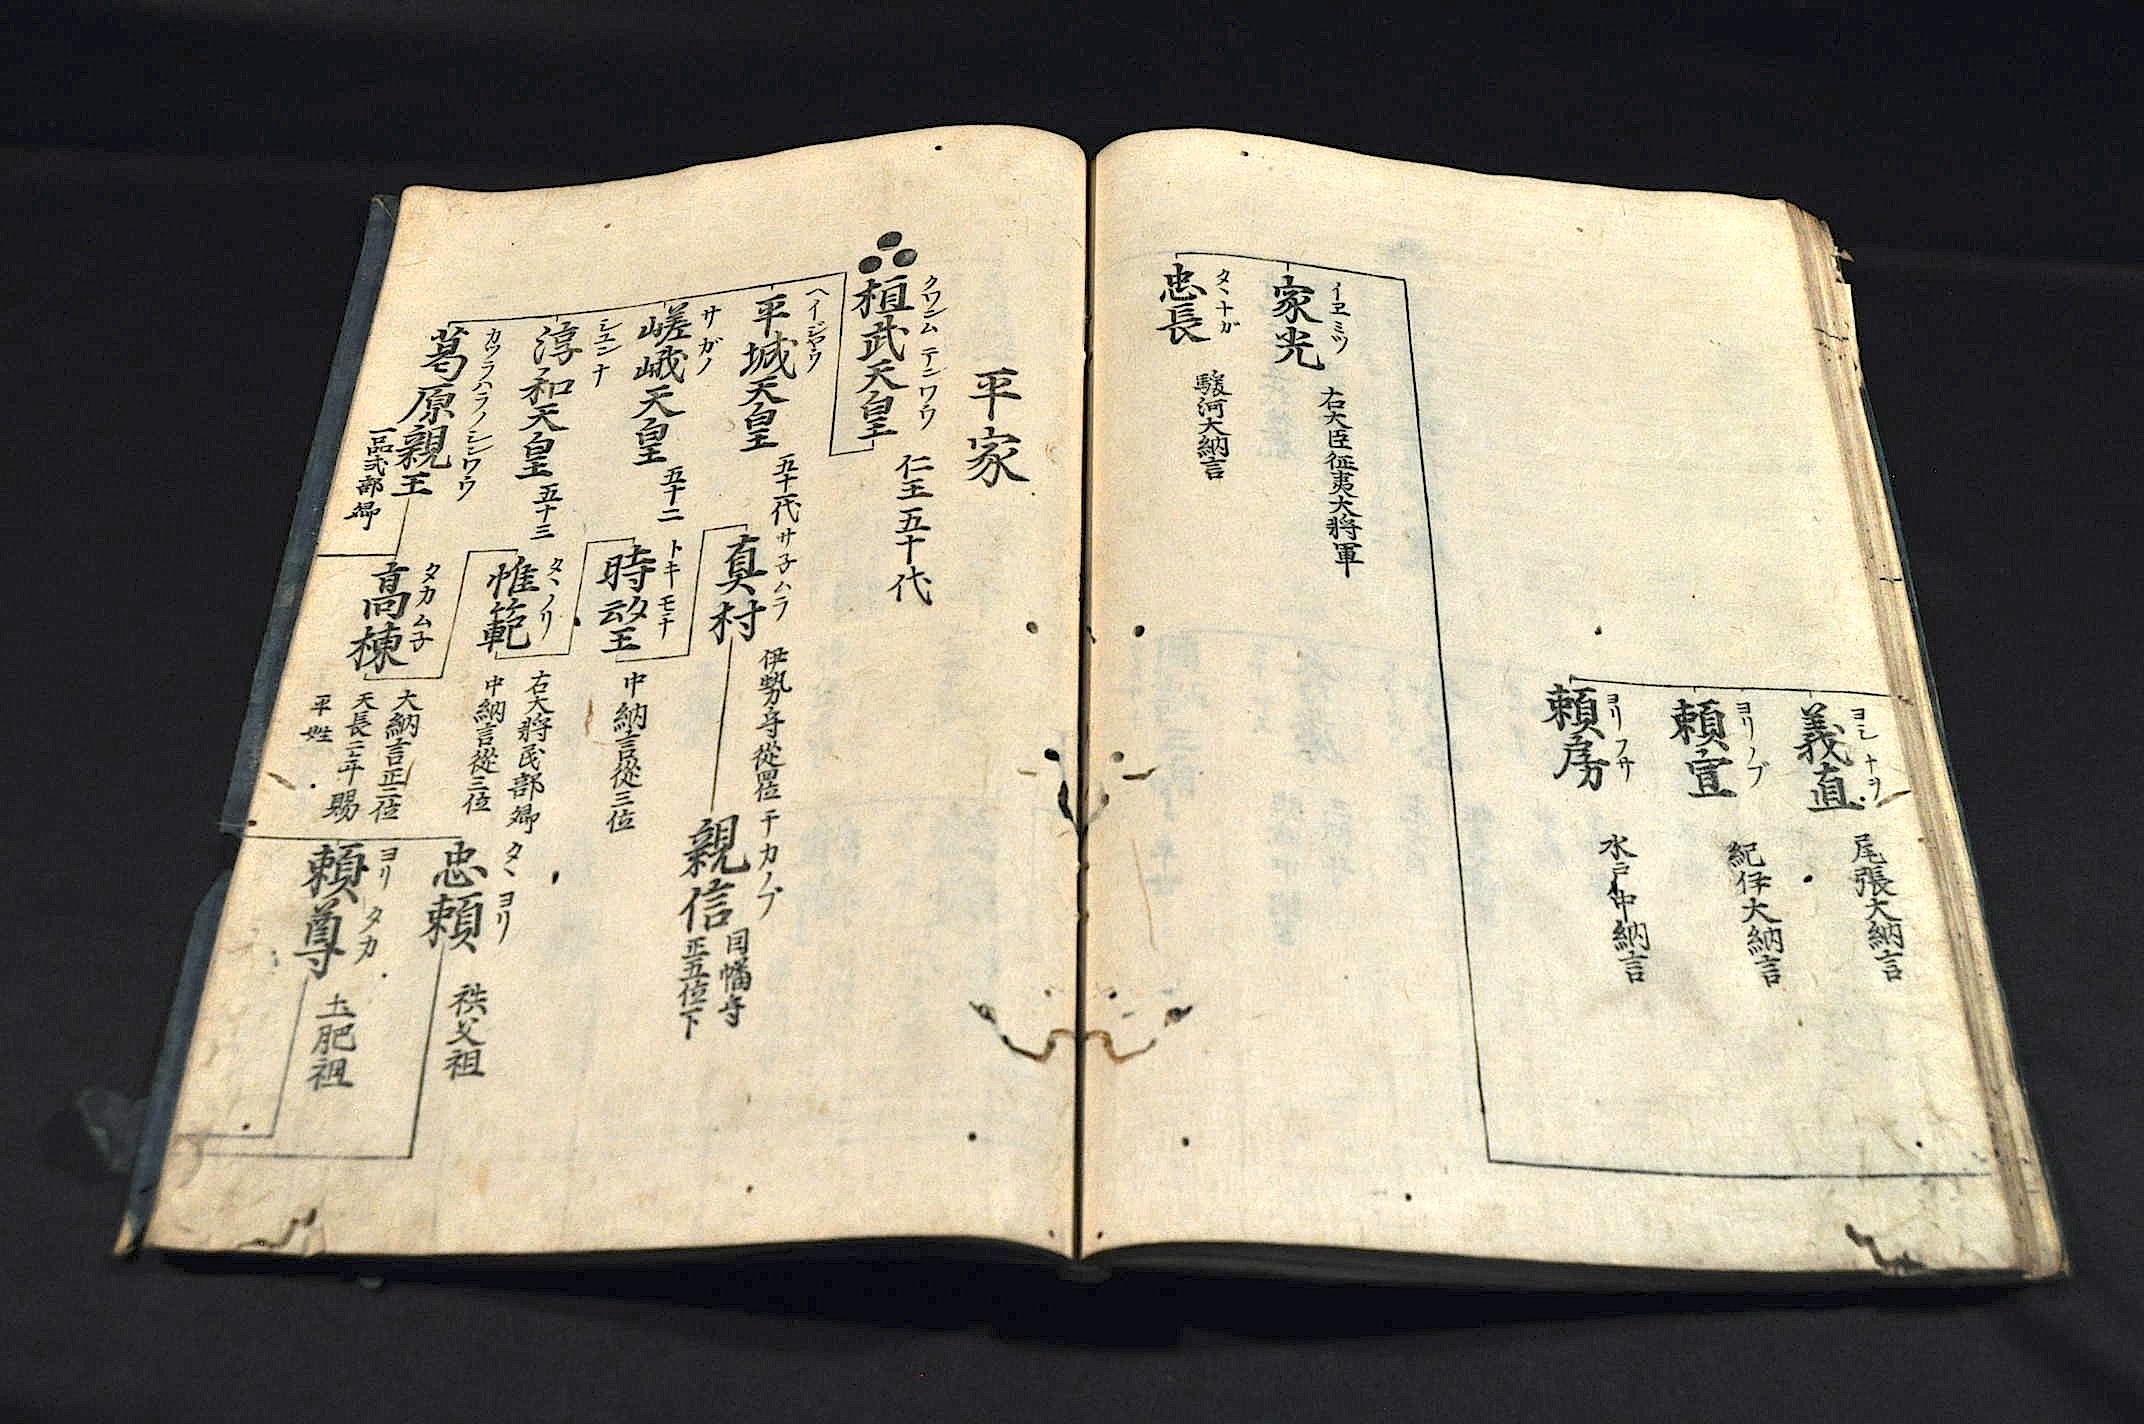 義直
ヨシナヲ
尾張大納言
頼宣
ヨリノブ
紀伊大納言
頼房
ヨリフサ
水戸中納言
家光
イヱミツ
右大臣征夷大将軍
忠長
タヽナガ
駿河大納言
平家
桓武天皇
クワンムテンワウ
仁王五十代
平城天皇
ヘイジヤウ
五十一代
嵯峨天皇
サガノ
五十二
淳和天皇
シユンナ
五十三
葛原親王
カツラハラノシンワウ
一品式部卿
高棟
タカムネ
大納言正三位
天長二年賜
平姓
惟範
タヽノリ
右大将民部卿
中納言従三位
時望
トキモチ
中納言従三位
真村
サネハラ
伊勢守従四位
親信
チカノブ
因幡守
正五位下
忠頼
タヽヨリ
秩父祖
頼尊
ヨリタカ
土肥祖